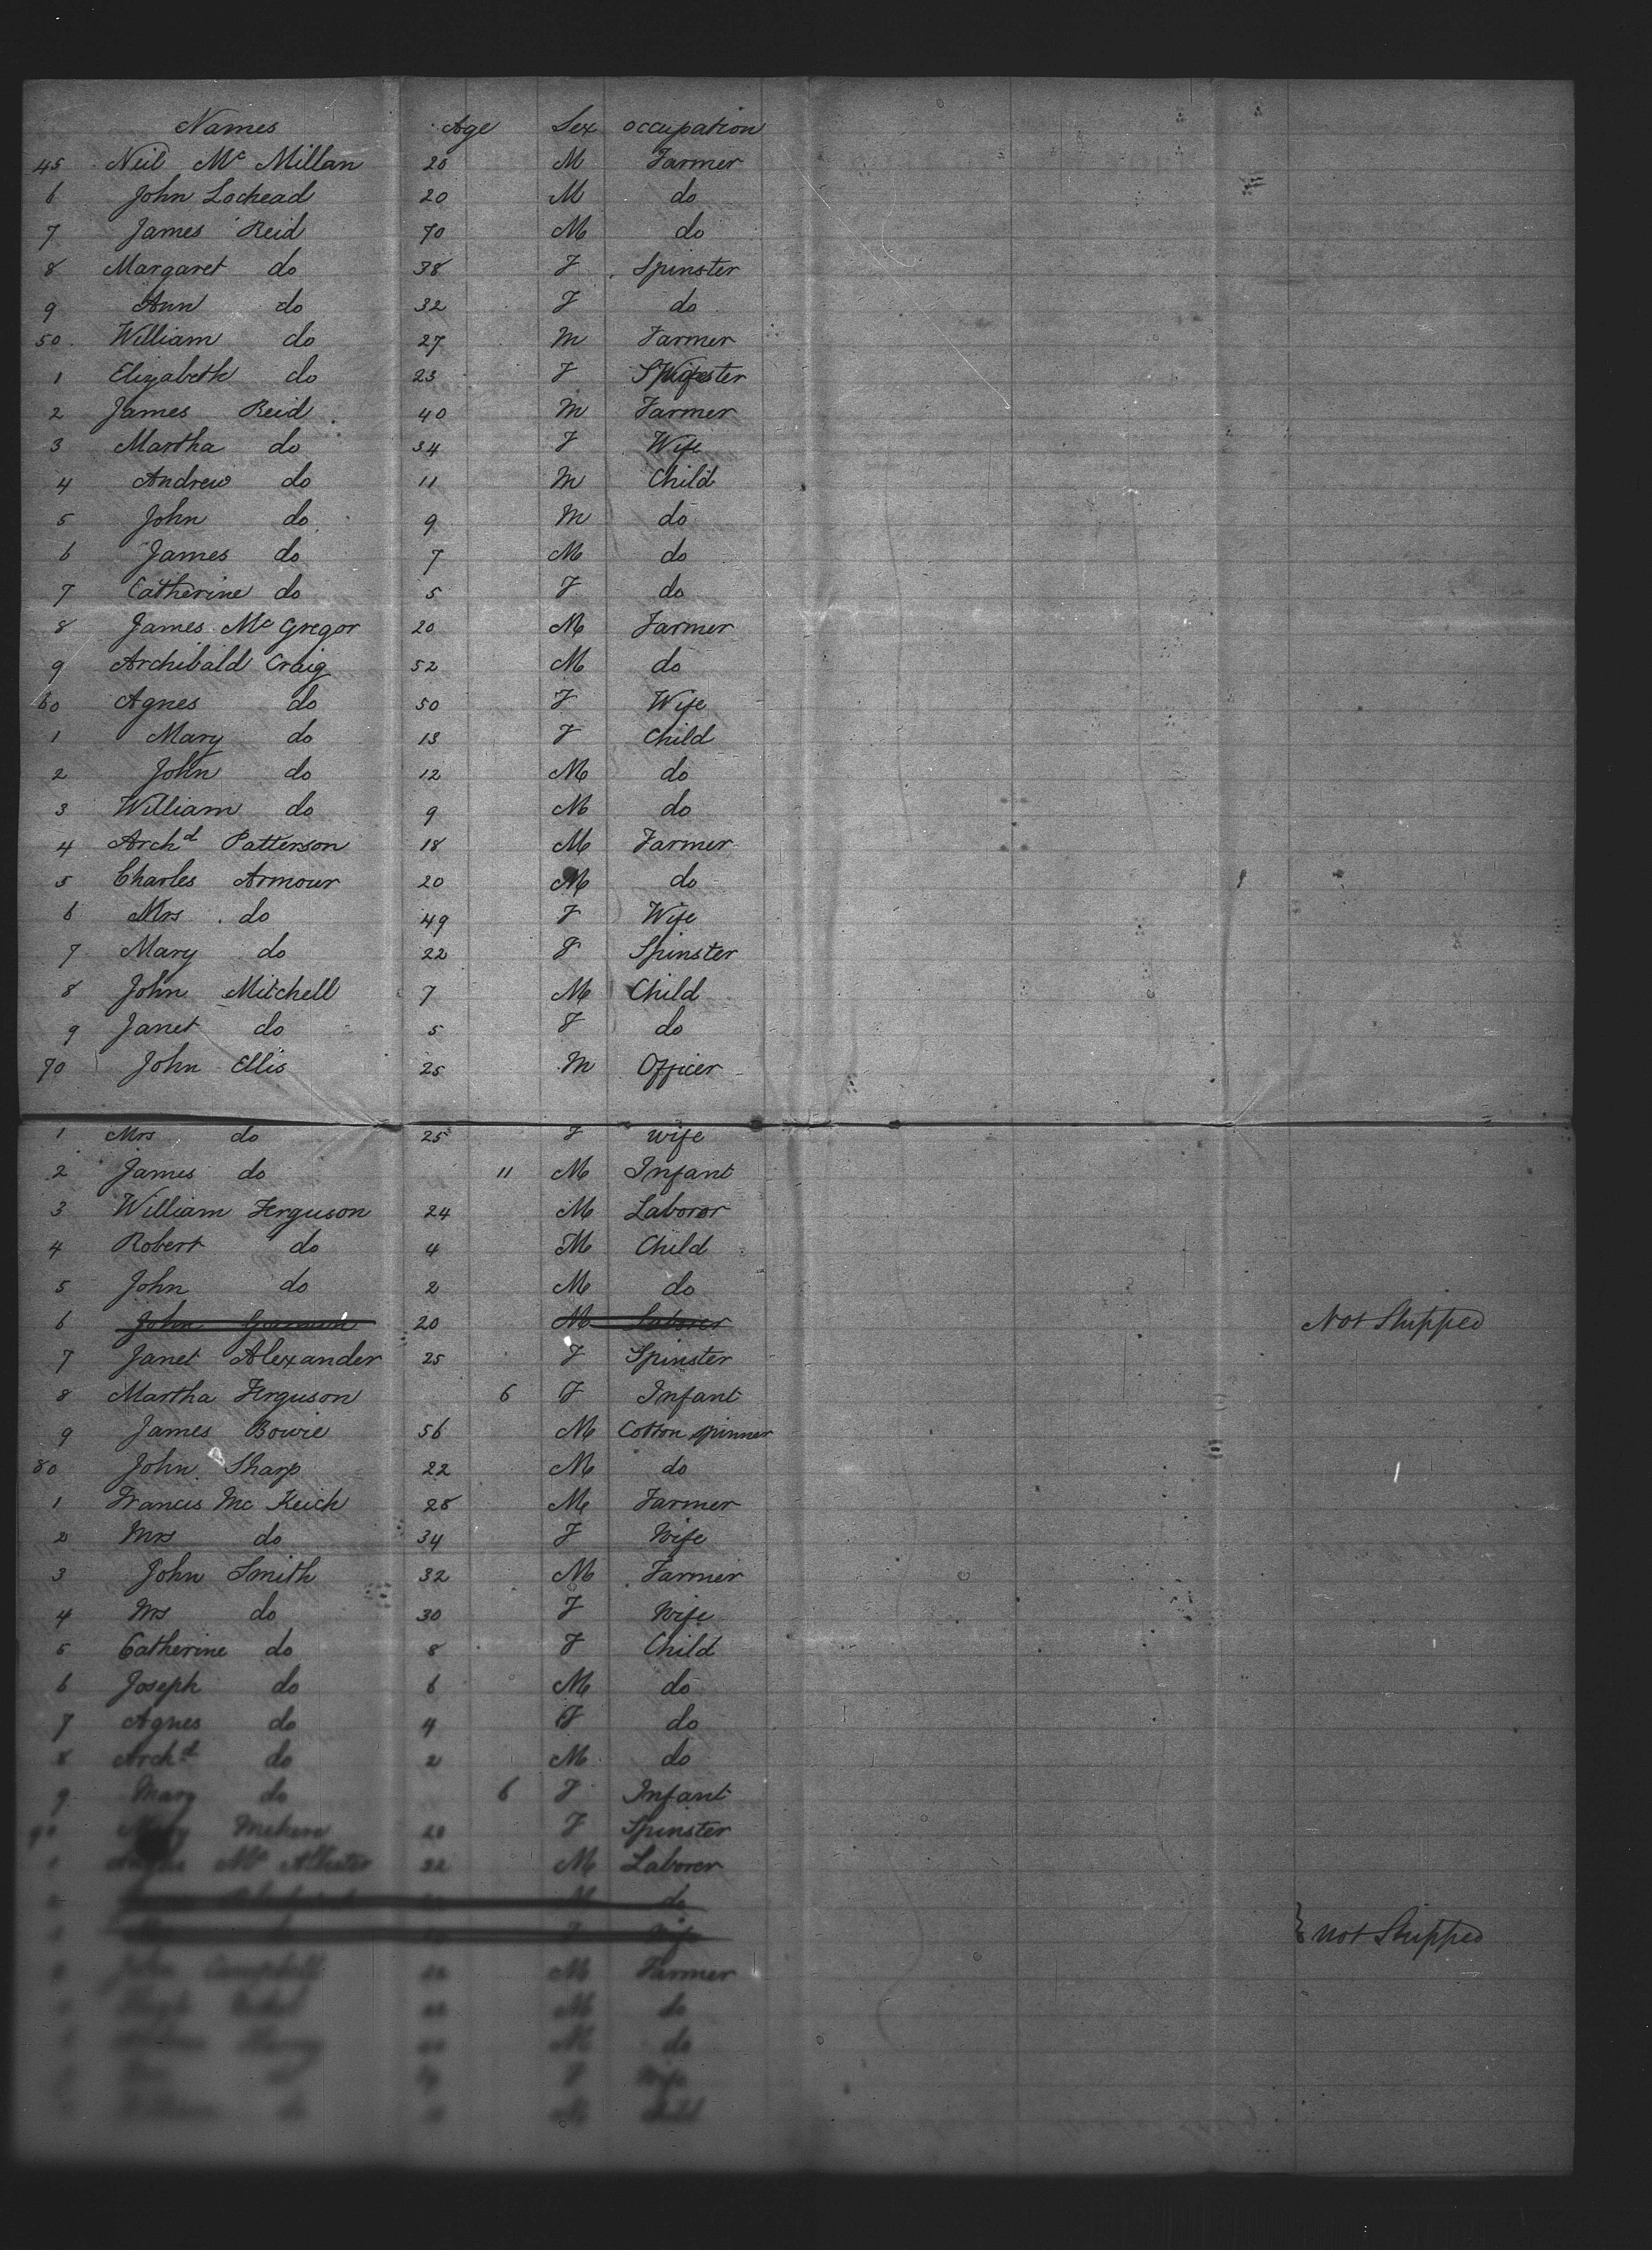 Names Age Sex occupation
45 Neil Mc Millan 20 M Farmer
6 John Lochead 20 M do
7 James Reid 70 M do
8 Margaret do 38 F Spinster
9 Ann do 32 F do
50 William do 27 M Farmer
1 Elizabeth do 23 F
2 James Reid 40 M Farmer
3 Martha do 34 F Wife
4 Andrew do 11 M Child
5 John do 9 M do
6 James do 7 M do
7 Catherine do 5 F do
8 James Mc Gregor 20 M Farmer
9 Archibald Craig 52 M do
60 Agnes do 50 F Wife
1 Mary do 13 F Child
2 John do 12 M do
3 William do 9 M do
4 Archd Patterson 18 M Farmer
5 Charles Armour 20 M do
6 Mrs do 49 F Wife
7 Mary do 22 F Spinster
8 John Mitchell 7 M Child
9 Janet do 5 F do
70 John Ellis 25 M Officer
1 Mrs do 25 F wife
2 James do 11 M Infant
3 William Ferguson 24 M Laboror
4 Robert do 4 M Child
5 John do 2 M do
6 John 20 M Laborer Not Shipped
7 Janet Alexander 25 F Spinster
8 Martha Ferguson 6 F Infant
9 James Bowie 56 M Cotton spinner
80 John Sharp 22 M do
1 Francis Mc Keich 28 M Farmer
2 Mrs do 34 F Wife
3 John Smith 32 M Farmer
4 Mrs do 30 F Wife
5 Catherine do 8 F Child
6 Joseph do 6 M do
7 Agnes do 4 F do
8 Archd do 2 M do
9 Mary do 6 F Infant
90 Mary F Spinster
Mc 22 M Laborer
M do
F Wife not Shipped
John Campbell M Farmer
M do
M do
F Wife
M Child